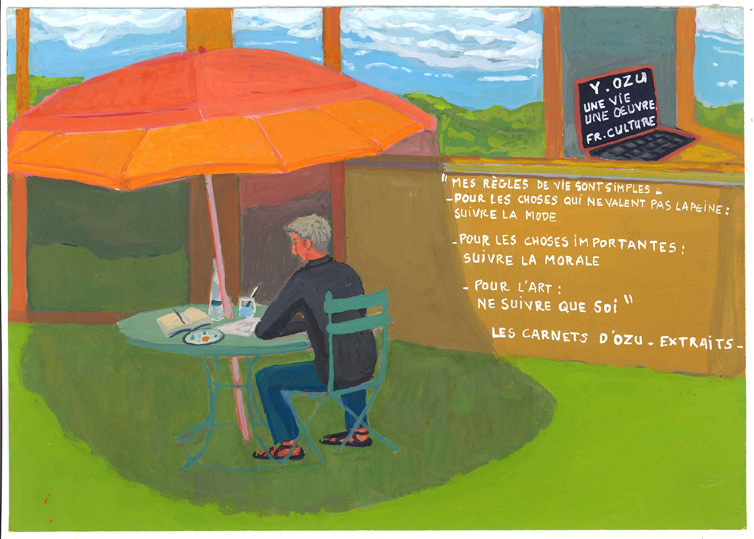 Y. OZU
UNE VIE
UNE ŒUVRE
FR. CULTURE
"MES RÈGLES DE VIE SONT SIMPLES -
- POUR LES CHOSES QUI NE VALENT PAS LA PEINE :
SUIVRE LA MODE
- POUR LES CHOSES IMPORTANTES :
SUIVRE LA MORALE
- POUR L'ART :
NE SUIVRE QUE SOI"
LES CARNETS D'OZU - EXTRAITS -